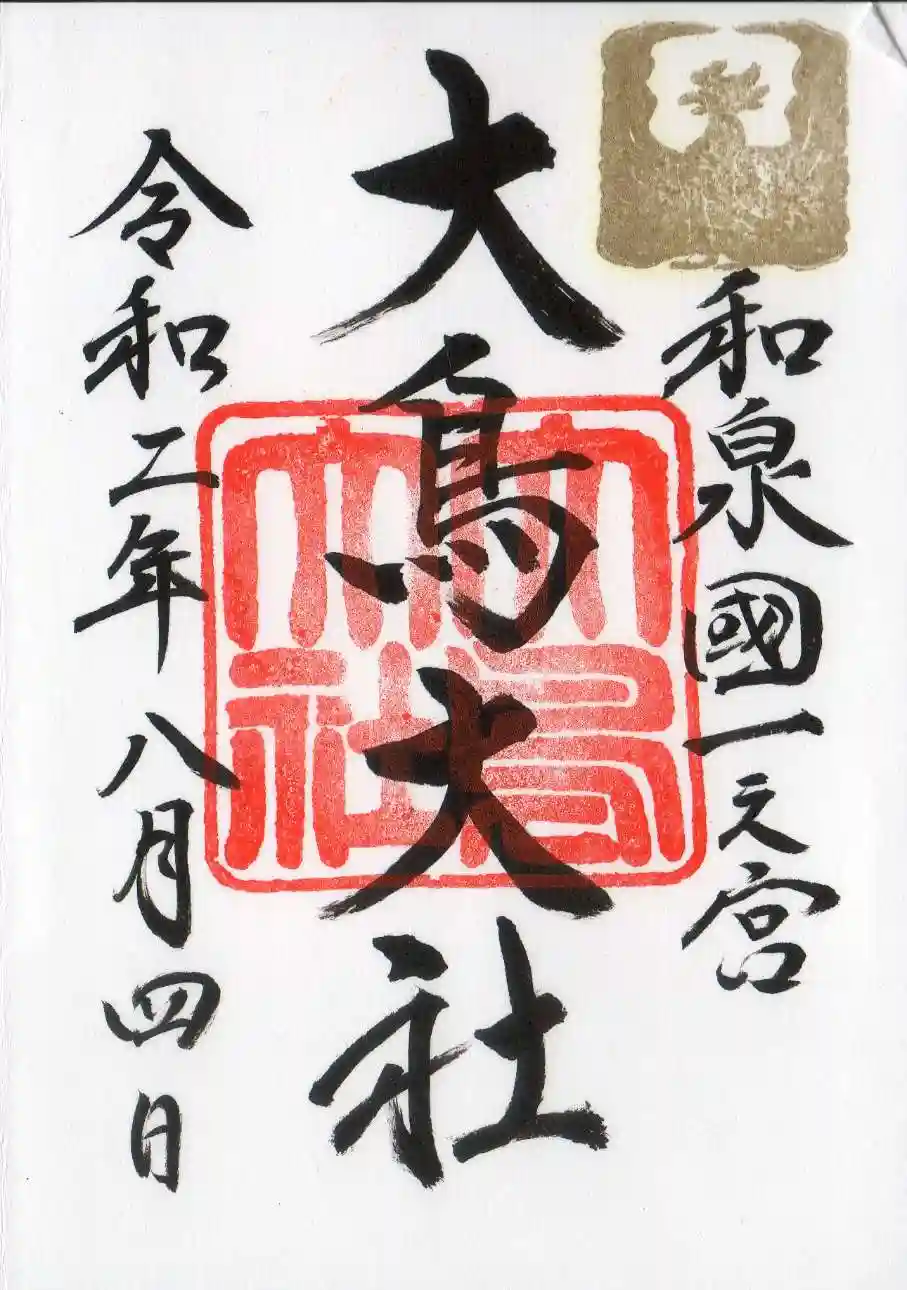 和泉國一之宮
大鳥大社
大鳥大社
令和二年八月四日